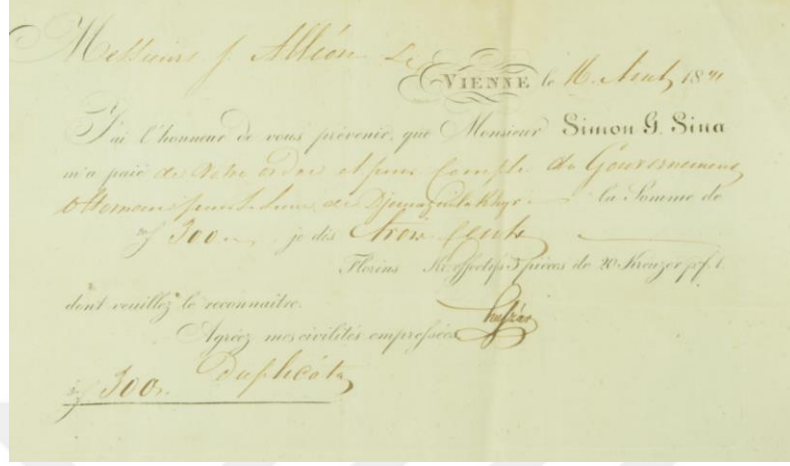 Messieurs J. Alléon
VIENNE le 16. Aout 18
J'ai l'honneur de vous prévenir, que Monsieur Simon G. Sina
m'a paié de Votre ordre et pour Compte du Gouvernement
Ottoman pour la Somme de
f 300 je dis trois Cents
Florins pièces de 20 Kreuzer pr f. 1.
dont veuillez le reconnaitre.
Agréez mes civilités empressées
f 300. Duplicata